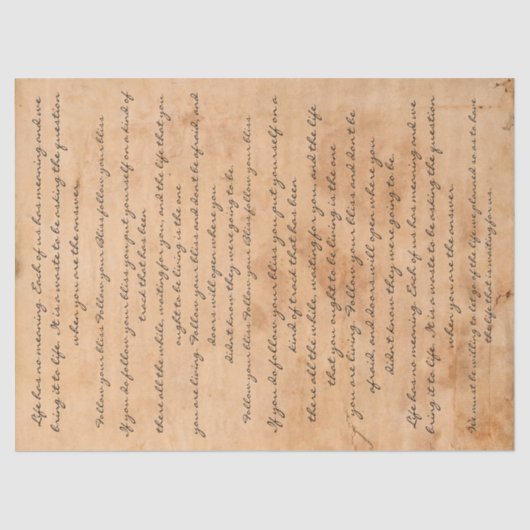 Life has no meaning. Each of us has meaning and we
bring it to life. It is a waste to be asking the question
when you are the answer.
Follow your bliss Follow your Bliss follow your bliss
If you do follow your bliss you put yourself on a kind of
track that has been
there all the while, waiting for you, and the life that you
ought to be living is the one
you are living. Follow your bliss and don't be afraid, and
doors will open where you
didn't know they were going to be.
Follow your bliss Follow your Bliss follow your bliss
If you do follow your bliss you put yourself on a
kind of track that has been
there all the while, waiting for you, and the life
that you ought to be living is the one
you are living. Follow your bliss and don't be
afraid, and doors will open where you
didn't know they were going to be.
Life has no meaning. Each of us has meaning and we
bring it to life. It is a waste to be asking the question
when you are the answer.
We must be willing to let go of the life we planned so as to have
the life that is waiting for us.